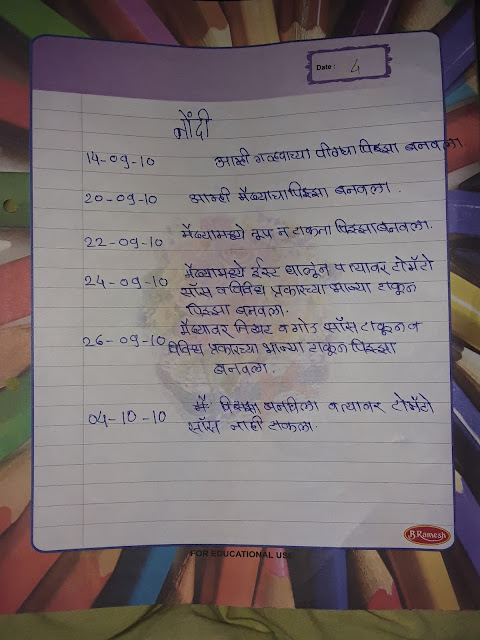 Date : 4
नोंदी
14-09-10 आम्ही गव्हाच्या पीठाचा पिझ्झा बनवला.
20-09-10 आम्ही मैद्याचा पिझ्झा बनवला.
22-09-10 मैद्यामध्ये तूप न टाकता पिझ्झा बनवला.
24-09-10 मैद्यामध्ये ईस्ट घालून व त्यावर टोमॅटो
सॉस व विविध प्रकारच्या भाज्या टाकून
पिझ्झा बनवला.
26-09-10 मैद्यावर तिखट व गोड सॉस टाकून व
विविध प्रकारच्या भाज्या टाकून पिझ्झा
बनवला.
04-10-10 पिझ्झा बनविला व त्यावर टोमॅटो
सॉस नाही टाकला.
B.Ramesh
FOR EDUCATIONAL USE